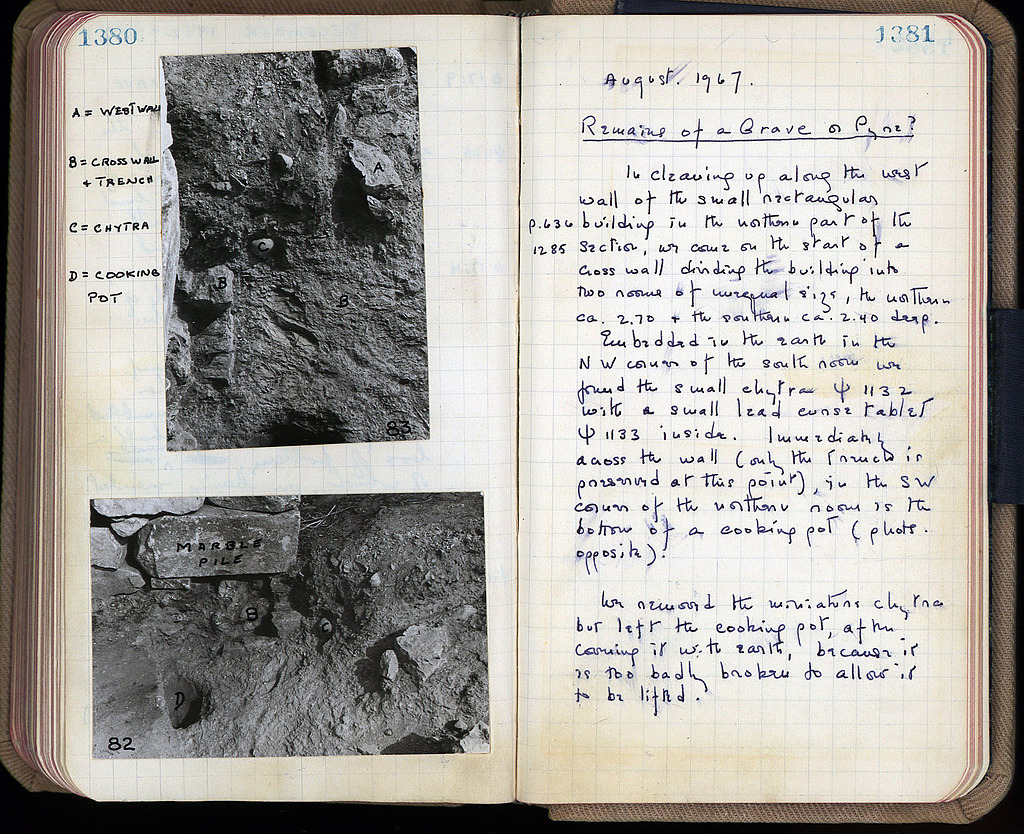 1380
A = WEST WALL
B = CROSS WALL
+ TRENCH
C = CHYTRA
D = COOKING
POT
A
C
B
B
83
MARBLE
PILE
B
C
D
82
1381
August. 1967.
Remains of a Grave or Pyre?
In cleaning up along the west
wall of the small rectangular
p.636 building in the northern part of the
1285 section, we come on the start of a
cross wall dividing the building into
two rooms of unequal size, the northern
ca. 2.70 + the southern ca. 2.40 deep.
Embedded in the earth in the
NW corner of the south room we
found the small chytra Ψ 1132
with a small lead curse tablet
Ψ 1133 inside. Immediately
across the wall (only the trench is
preserved at this point), in the SW
corner of the northern room is the
bottom of a cooking pot (photo.
opposite).
We removed the miniature chytra
but left the cooking pot, after
covering it with earth, because it
is too badly broken to allow it
to be lifted.